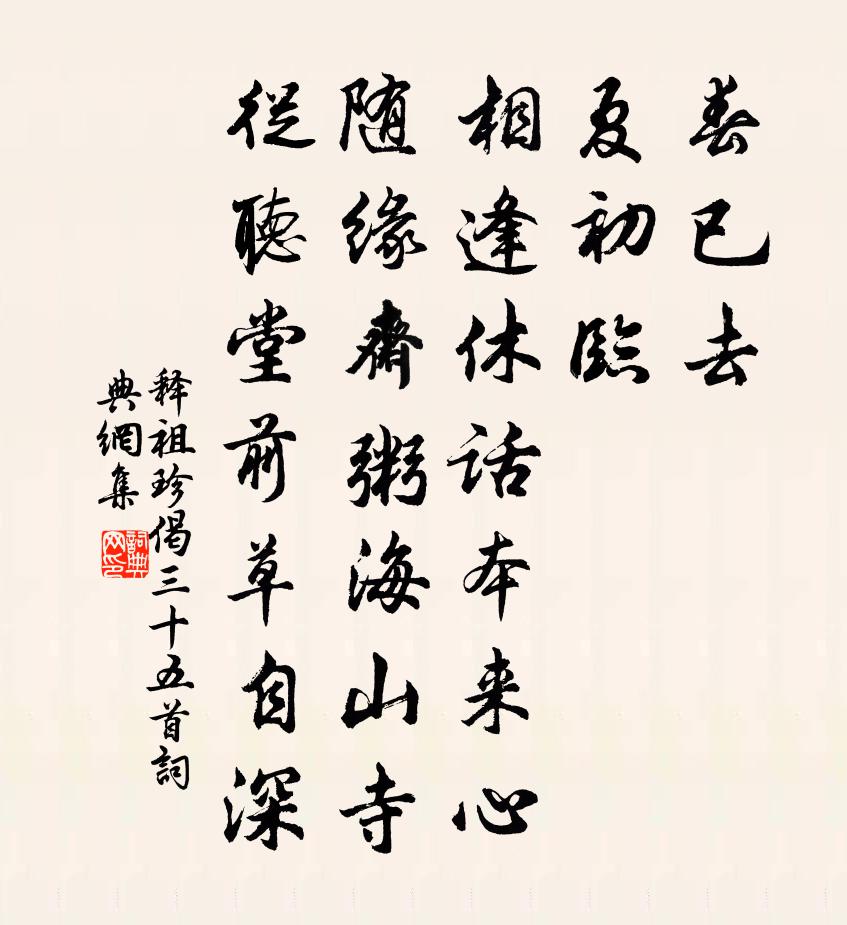 春已去
夏初臨
相逢休话本来心
随缘齋粥海山寺
從聽堂前草自深
释祖珍偈三十五首詞
典網集
詞典
网印